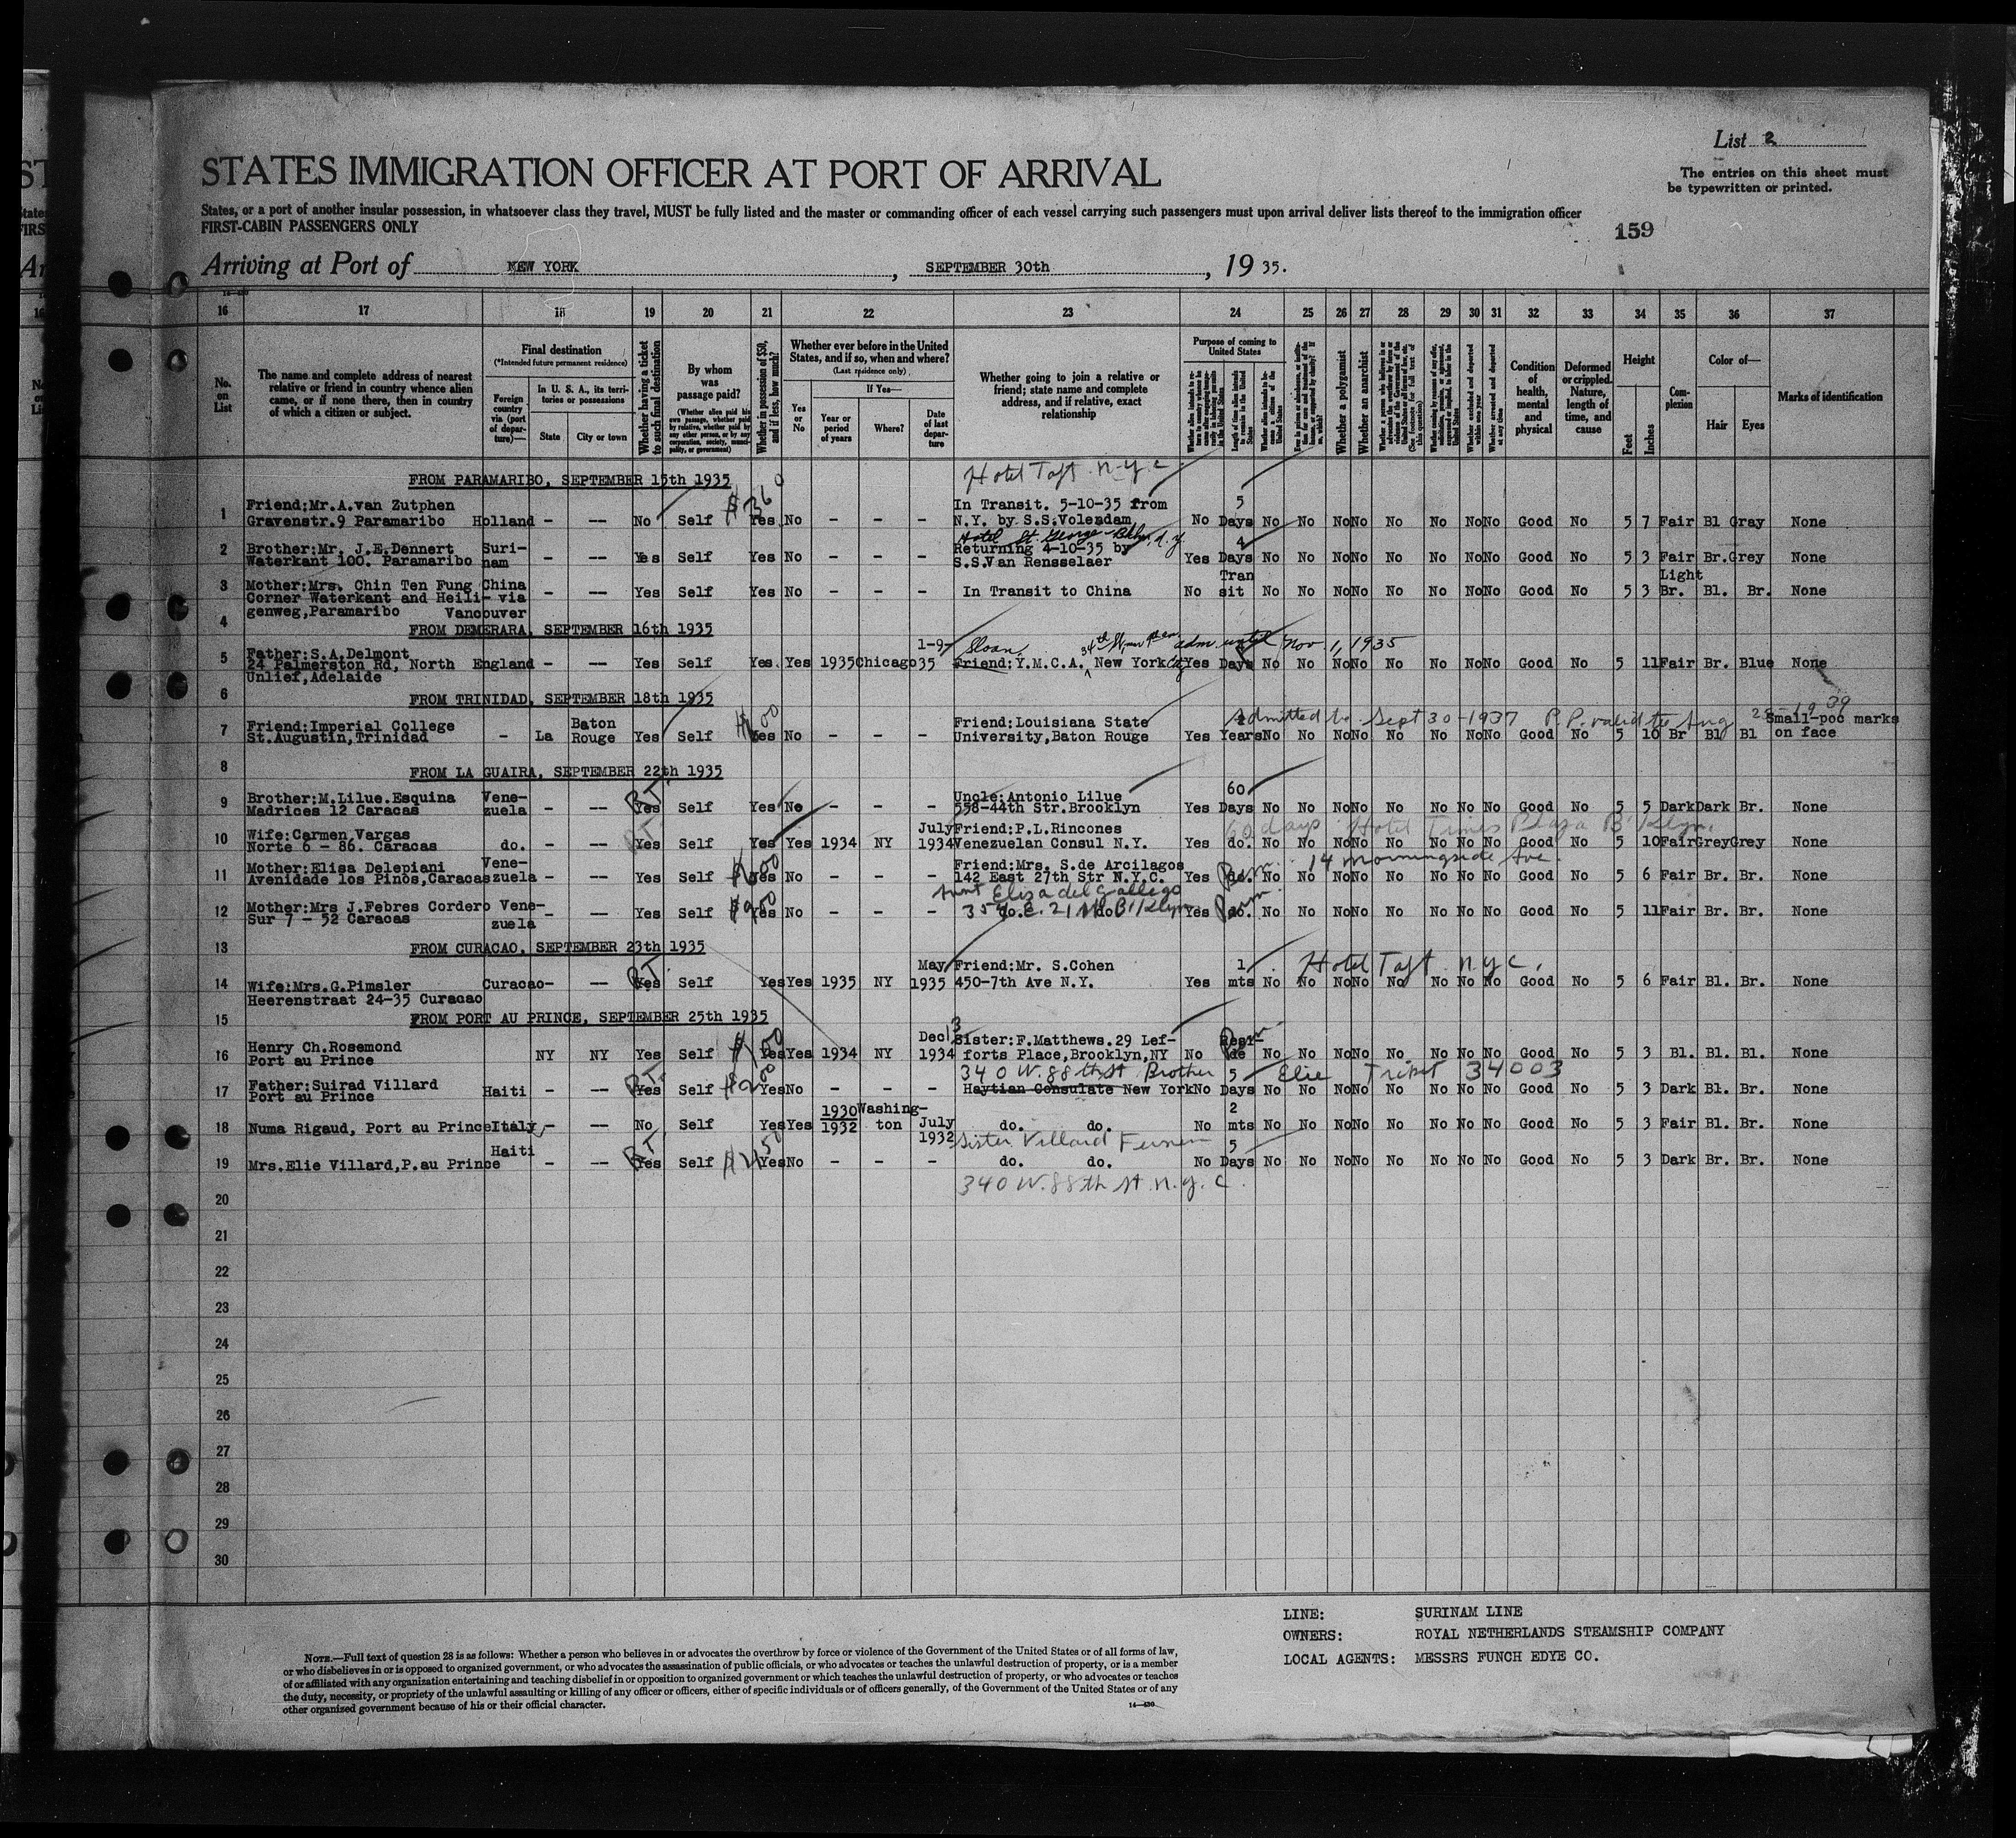 List 2
The entries on this sheet must
be typewritten or printed.
STATES IMMIGRATION OFFICER AT PORT OF ARRIVAL
States, or a port of another insular possession, in whatsoever class they travel, MUST be fully listed and the master or commanding officer of each vessel carrying such passengers must upon arrival deliver lists thereof to the immigration officer
FIRST-CABIN PASSENGERS ONLY
159
Arriving at Port of NEW YORK, SEPTEMBER 30th, 19 35.
16 17 18 19 20 21 22 23 24 25 26 27 28 29 30 31 32 33 34 35 36 37
No. on List
The name and complete address of nearest
relative or friend in country whence alien
came, or if none there, then in country
of which a citizen or subject.
Final destination
(*Intended future permanent residence)
Foreign country via (port of departure)—
In U. S. A., its territories or possessions
State
City or town
Whether having a ticket to such final destination
By whom was passage paid?
(Whether alien paid his own passage, whether paid by relative, whether paid by any other person, or by any corporation, society, municipality, or government)
Whether in possession of $50, and if less, how much?
Whether ever before in the United
States, and if so, when and where?
(Last residence only)
Yes or No
If Yes—
Year or period of years
Where?
Date of last departure
Whether going to join a relative or
friend; state name and complete
address, and if relative, exact
relationship
Purpose of coming to United States
Whether a polygamist
Whether an anarchist
Condition of health, mental and physical
Deformed or crippled. Nature, length of time, and cause
Height
Feet
Inches
Complexion
Color of—
Hair
Eyes
Marks of identification
FROM PARAMARIBO, SEPTEMBER 15th 1935
Hotel Taft N.Y.C
1 Friend:Mr.A.van Zutphen In Transit. 5-10-35 from 5
Gravenstr.9 Paramaribo Holland - -- No Self $360 Yes No - - - N.Y. by S.S.Volendam No Days No No No No No No No No Good No 5 7 Fair Bl Gray None
Hotel St. George Bklyn, N.Y.
2 Brother:Mr. J.E.Dennert Suri- Returning 4-10-35 by 4
Waterkant 100. Paramaribo nam - -- Yes Self Yes No - - - S.S.Van Rensselaer Yes Days No No No No No No No No Good No 5 3 Fair Br. Grey None
3 Mother:Mrs. Chin Ten Fung China Tran Light
Corner Waterkant and Heili- via - -- Yes Self Yes No - - - In Transit to China No sit No No No No No No No No Good No 5 3 Br. Bl. Br. None
genweg,Paramaribo Vancouver
4 FROM DEMERARA, SEPTEMBER 16th 1935
1-9- Sloan, 34th St, near 9th av. adm. until Nov. 1, 1935
5 Father:S.A.Delmont
24 Palmerston Rd, North England - -- Yes Self Yes. Yes 1935 Chicago 35 Friend:Y.M.C.A. New York City Yes Days No No No No No No No No Good No 5 11 Fair Br. Blue None
Unlief,Adelaide
6 FROM TRINIDAD, SEPTEMBER 18th 1935
Admitted to Sept 30-1937 P.P. valid to Aug 28-1939
7 Friend:Imperial College Baton Friend:Louisiana State Small-poc marks
St.Augustin,Trinidad - La Rouge Yes Self Yes No - - - University,Baton Rouge Yes Years No No No No No No No No Good No 5 10 Br Bl Bl on face
8 FROM LA GUAIRA, SEPTEMBER 22th 1935
9 Brother:M.Lilue.Esquina Vene- R.T. Uncle:Antonio Lilue 60
Madrices 12 Caracas zuela - -- Yes Self Yes No - - - 558-44th Str.Brooklyn Yes Days No No No No No No No No Good No 5 5 Dark Dark Br. None
60 days Hotel Times Plaza B'klyn.
10 Wife:Carmen Vargas R.T. July Friend:P.L.Rincones
Norte 6 - 86. Caracas do. - -- Yes Self Yes Yes 1934 NY 1934 Venezuelan Consul N.Y. Yes do. No No No No No No No No Good No 5 10 Fair Grey Grey None
14 Morningside Ave.
11 Mother:Elisa Delepiani Vene- Friend:Mrs. S.de Arcilagos
Avenidade los Pinos,Caracas zuela - -- Yes Self $600 Yes No - - - 142 East 27th Str N.Y.C. Yes do. Perm. No No No No No No No No Good No 5 6 Fair Br. Br. None
Aunt Eliza del Gallego
12 Mother:Mrs J.Febres Cordero Vene- 354 E. 21 St. B'klyn
Sur 7 - 52 Caracas zuela - -- Yes Self $900 Yes No - - - do. do. Yes do. Perm. No No No No No No No No Good No 5 11 Fair Br. Br. None
13 FROM CURACAO, SEPTEMBER 23th 1935
R.T. May Friend:Mr. S.Cohen 1 Hotel Taft N.Y.C.
14 Wife:Mrs.G.Pimsler Curacao - -- Yes Self Yes Yes 1935 NY 1935 450-7th Ave N.Y. Yes mts No No No No No No No No Good No 5 6 Fair Bl. Br. None
Heerenstraat 24-35 Curacao
15 FROM PORT AU PRINCE, SEPTEMBER 25th 1935
16 Henry Ch.Rosemond Dec 13 Sister:F.Matthews.29 Lef- Resi-
Port au Prince NY NY Yes Self $100 Yes Yes 1934 NY 1934 forts Place,Brooklyn,NY No de No No No No No No No No Good No 5 3 Bl. Bl. Bl. None
340 W. 88th St Brother 5 Elie Tribit 34003
17 Father:Suirad Villard R.T.
Port au Prince Haiti - -- Yes Self $200 Yes No - - - Haytian Consulate New York No Days No No No No No No No No Good No 5 3 Dark Bl. Br. None
1930 Washing- 2
18 Numa Rigaud, Port au Prince Italy - -- No Self Yes Yes 1932 ton July 1932 do. do. No mts No No No No No No No No Good No 5 3 Fair Bl. Br. None
Sister Villard 5
19 Mrs.Elie Villard,P.au Prince Haiti - -- R.T. Yes Self Yes No - - - do. do. No Days No No No No No No No No Good No 5 3 Dark Br. Br. None
340 W. 88th St. N.Y.C.
20
21
22
23
24
25
26
27
28
29
30
LINE: SURINAM LINE
OWNERS: ROYAL NETHERLANDS STEAMSHIP COMPANY
LOCAL AGENTS: MESSRS FUNCH EDYE CO.
NOTE.—Full text of question 28 is as follows: Whether a person who believes in or advocates the overthrow by force or violence of the Government of the United States or of all forms of law,
or who disbelieves in or is opposed to organized government, or who advocates the assassination of public officials, or who advocates or teaches the unlawful destruction of property, or is a member
of or affiliated with any organization entertaining and teaching disbelief in or opposition to organized government or which teaches the unlawful destruction of property, or who advocates or teaches
the duty, necessity, or propriety of the unlawful assaulting or killing of any officer or officers, either of specific individuals or of officers generally, of the Government of the United States or of any
other organized government because of his or their official character.